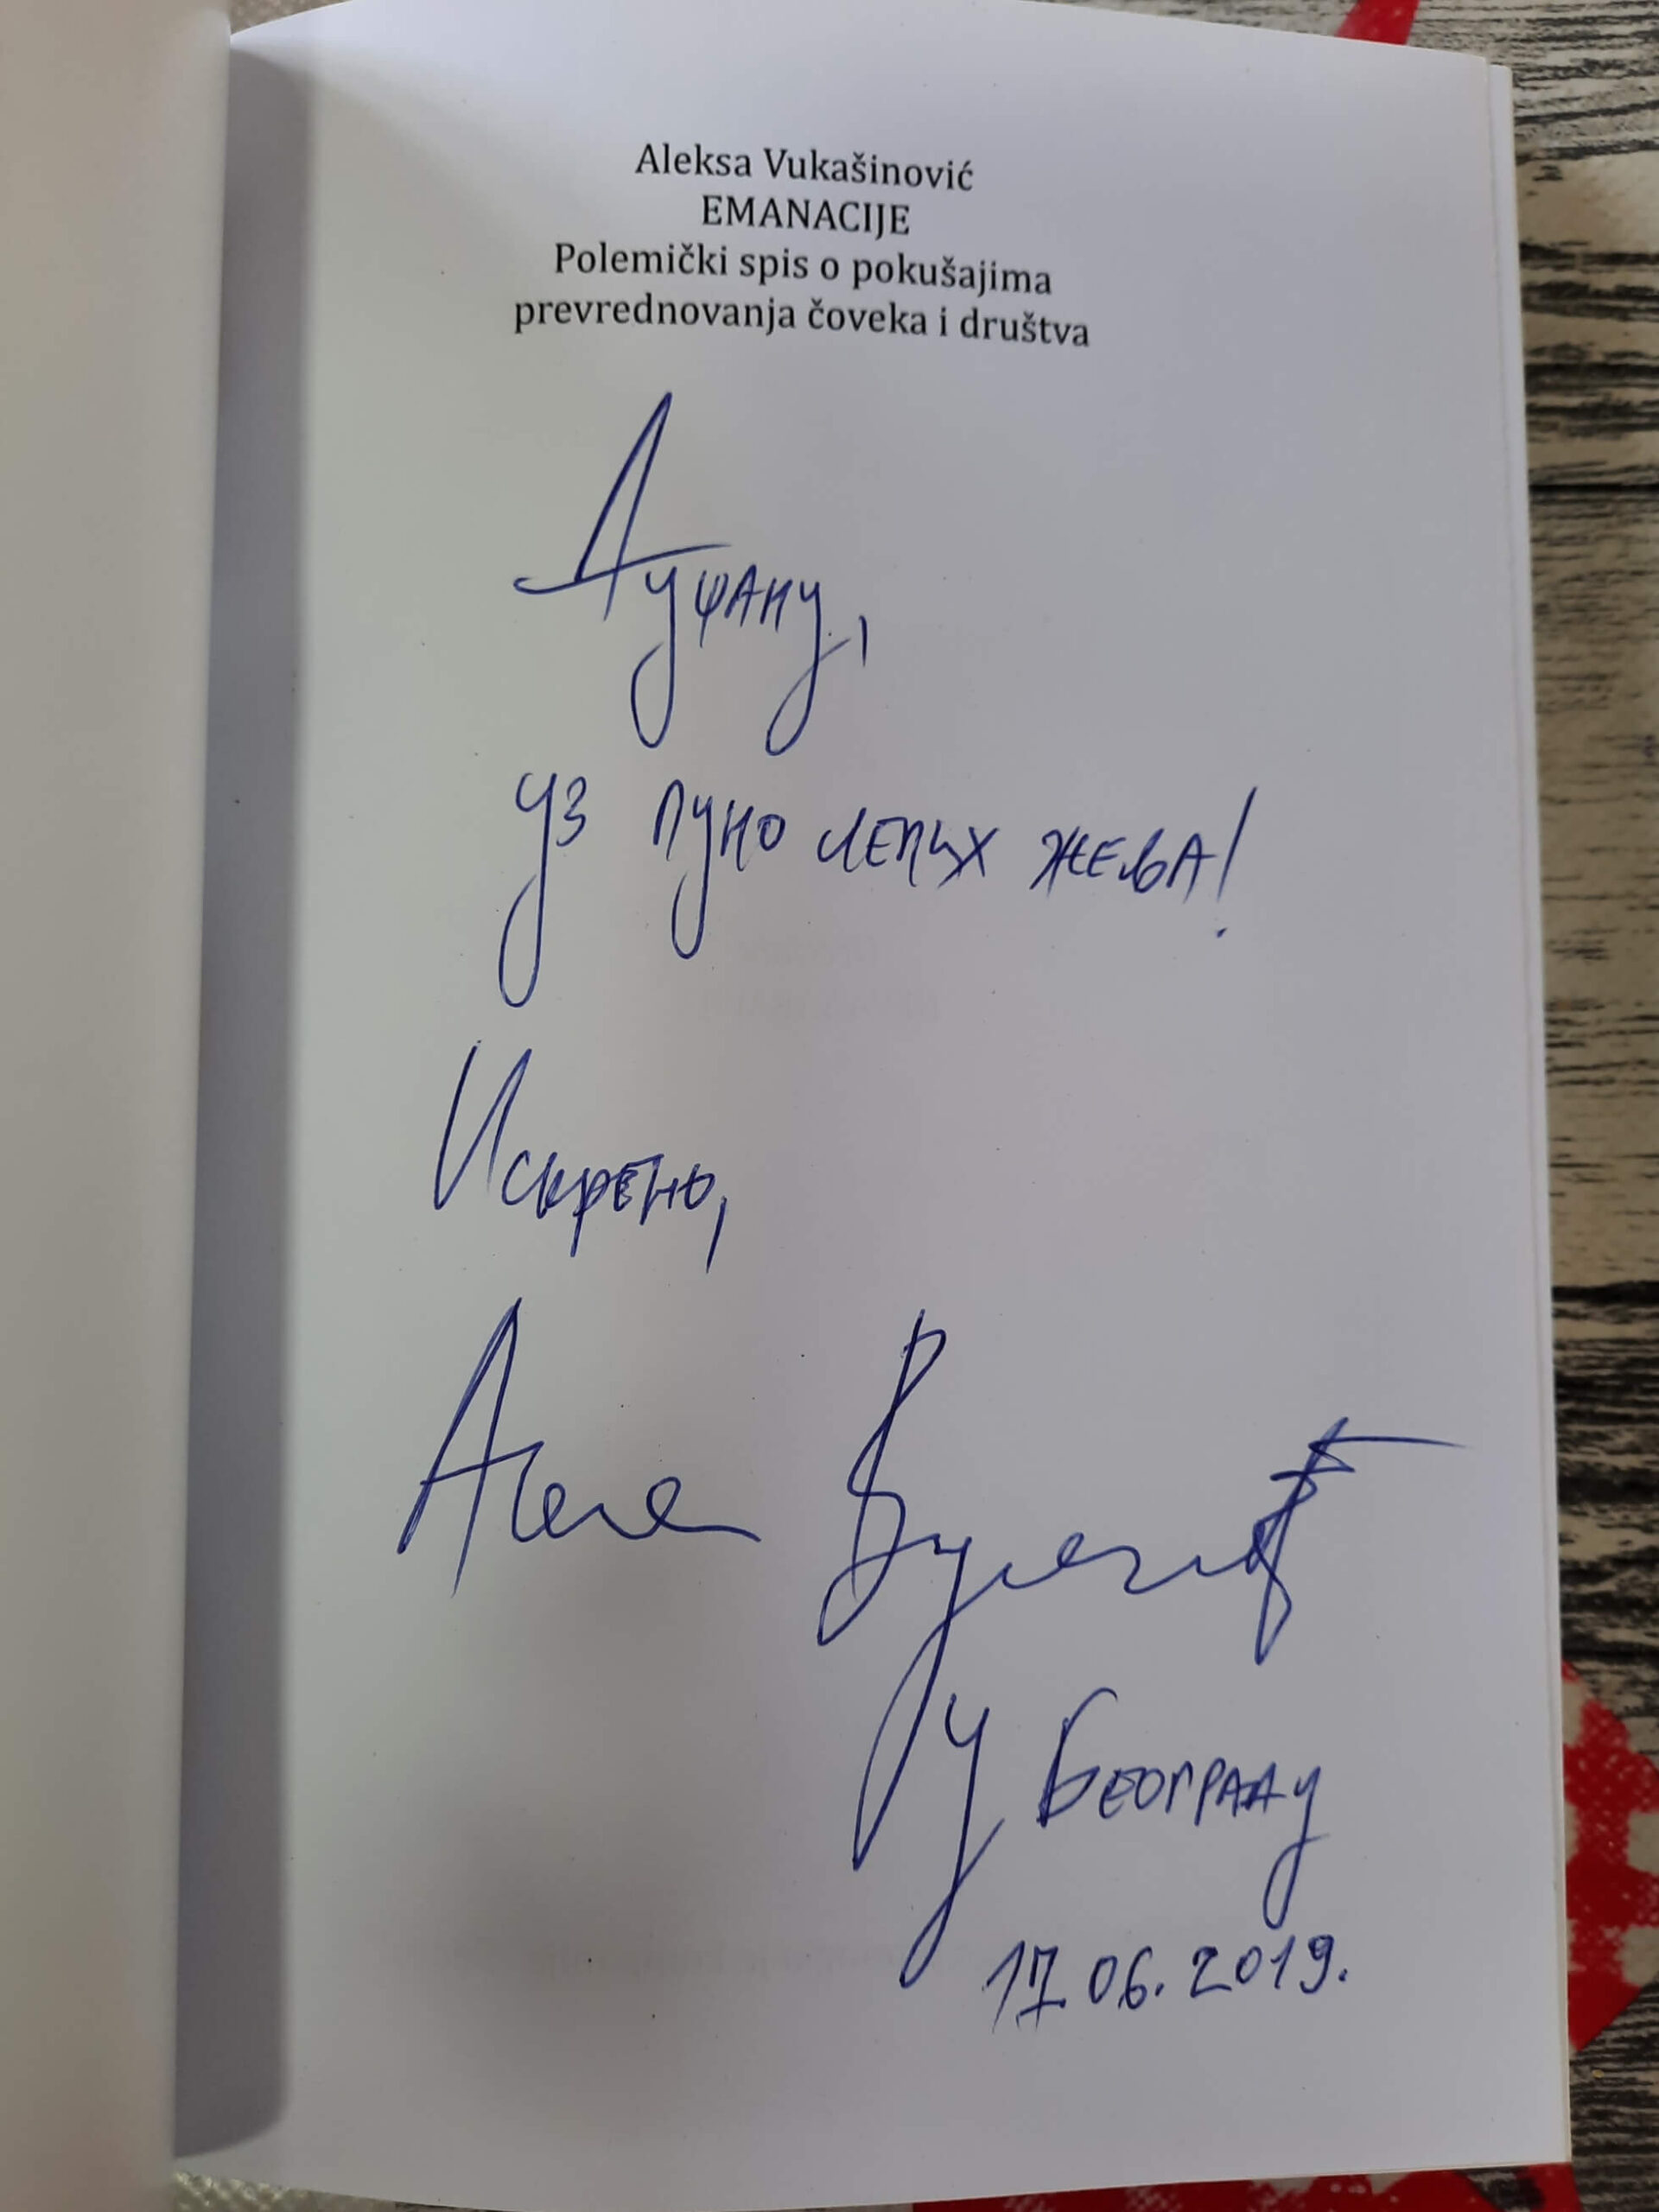 Aleksa Vukašinović
EMANACIJE
Polemički spis o pokušajima
prevrednovanja čoveka i društva
уз пуно лепих жеља!
Искрено,
У Београду
17.06.2019.